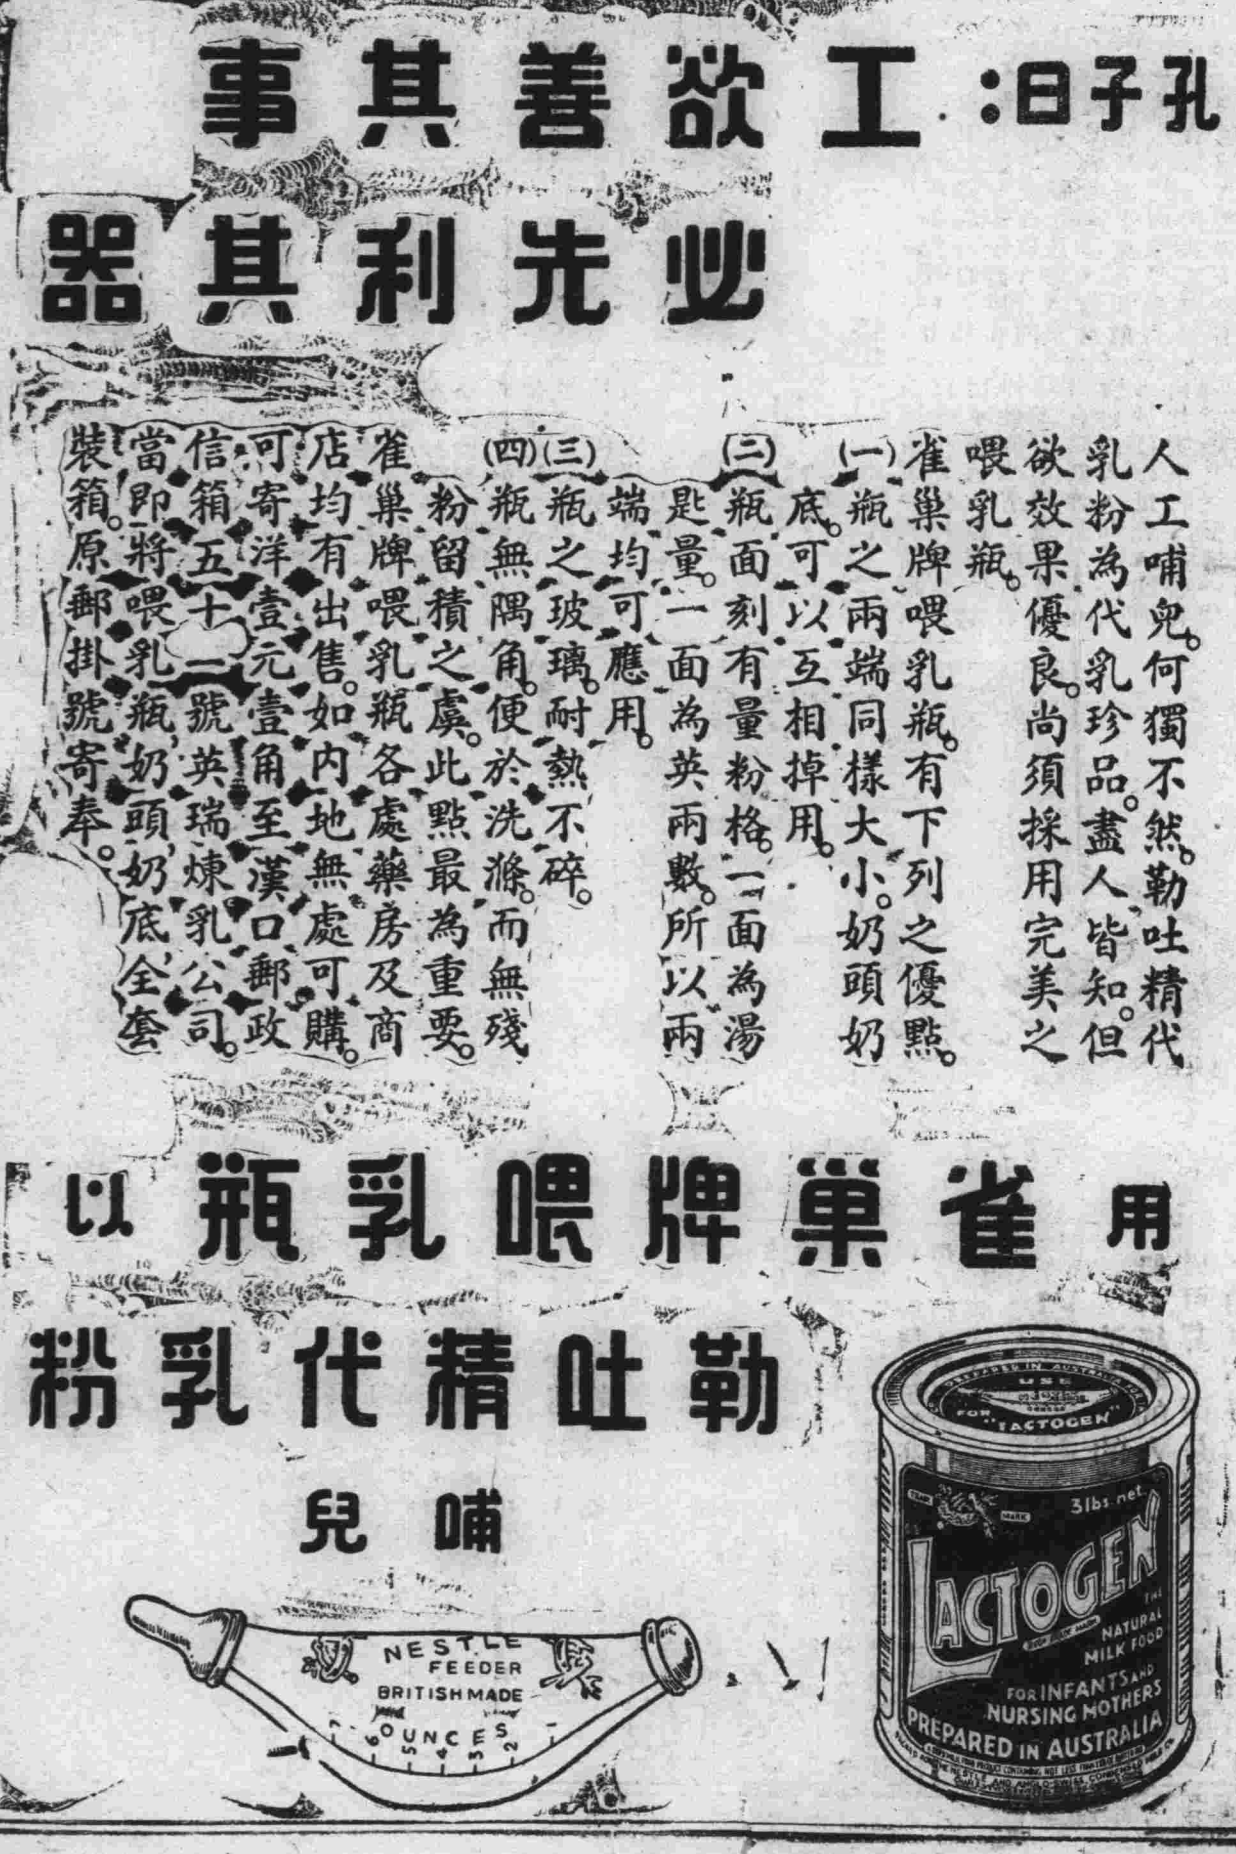 孔子曰：工欲善其事
必先利其器
人工哺兒。何獨不然。勒吐精代
乳粉為代乳珍品。盡人皆知。但
欲效果優良。尚須採用完美之
喂乳瓶。
雀巢牌喂乳瓶。有下列之優點。
(一)瓶之兩端同樣大小。奶頭奶
底。可以互相掉用。
(二)瓶面刻有量粉格。一面為湯
匙量。一面為英兩數。所以兩
端均可應用。
(三)瓶之玻璃。耐熱不碎。
(四)瓶無隅角。便於洗滌。而無殘
粉留積之虞。此點最為重要。
雀巢牌喂乳瓶各處藥房及商
店均有出售。如內地無處可購。
可寄洋壹元壹角至漢口郵政
信箱五十二號英瑞煉乳公司。
當即將喂乳瓶奶頭奶底全套
裝箱。原郵掛號寄奉。
用雀巢牌喂乳瓶以
勒吐精代乳粉
哺兒
NESTLE
FEEDER
BRITISH MADE
OUNCES
7 6 5 4 3 2 1
PREPARED IN AUSTRALIA FOR
USE
FOR
"LACTOGEN"
TRADE MARK
3lbs. net.
LACTOGEN
THE
NATURAL
MILK FOOD
FOR INFANTS AND
NURSING MOTHERS
PREPARED IN AUSTRALIA